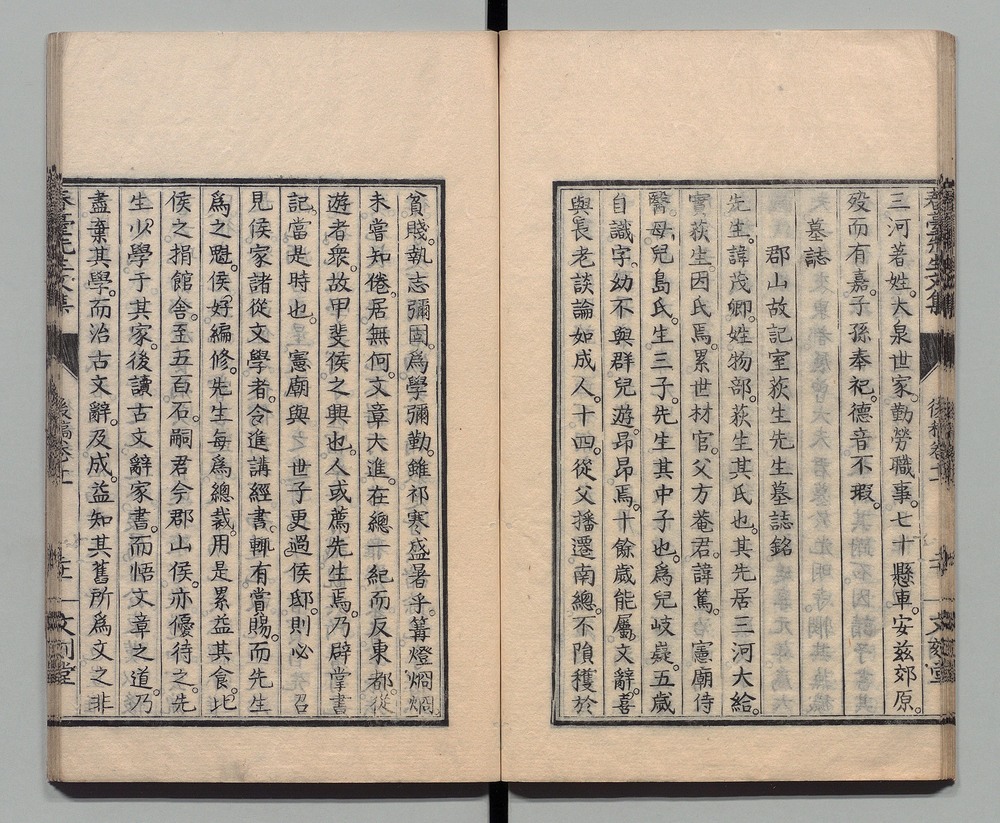 三河著姓。大泉世家。勤勞職事。七十懸車。安茲郊原。
歿而有嘉。子孫奉祀。德音不瑕。
墓誌
郡山故記室荻生先生墓誌銘
先生。諱茂卿。姓物部。荻生其氏也。其先居三河大給。
實荻生。因氏焉。累世材官。父方菴君。諱篤。憲廟侍
醫。母兒島氏。生三子。先生其中子也。爲兒岐嶷。五歲
自識字。幼不與群兒遊。昂昂焉。十餘歲能屬文辭。喜
與長老談論如成人。十四。從父播遷南總。不隕穫於
貧賤。執志彌固。爲學彌勤。雖祁寒盛暑乎。篝燈焖焖。
未嘗知倦。居無何。文章大進。在總一紀而反東都。從
遊者衆。故甲斐侯之興也。人或薦先生焉。乃辟掌書
記。當是時也。憲廟與 世子更過侯邸。則必 召
見侯家諸從文學者。令進講經書。輒有賞賜。而先生
爲之魁。侯好編修。先生每爲總裁。用是累益其食。比
侯之捐館舍。至五百石。嗣君今郡山侯。亦優待之。先
生少學于其家。後讀古文辭家書。而悟文章之道。乃
盡棄其學。而治古文辭。及成。益知其舊所爲文之非
春臺先生文集 後稿卷十一 文刻堂